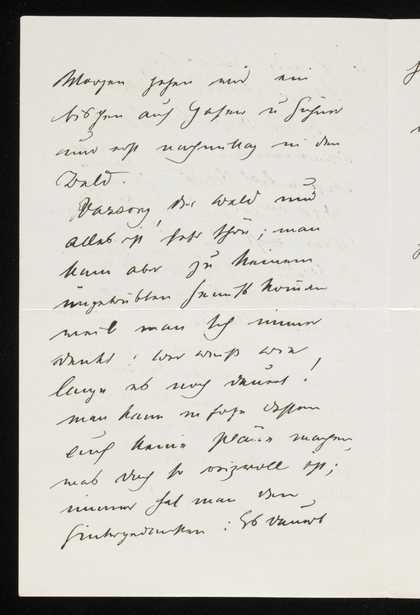 Morgen gehen wir ein
bisschen auf Hasen u Hühner
und erst nachmittag in den
Wald.
Varsony, der Wald und
alles ist sehr schön; man
kann aber zu keinem
ungetrübten Genuss kommen
weil man sich immer
denkt: wer weiss wie
lange es noch dauert!
man kann in folge dessen
auch keine Pläne machen
was doch so reizvoll ist;
immer hat man den
Hintergedanken: Es dauert